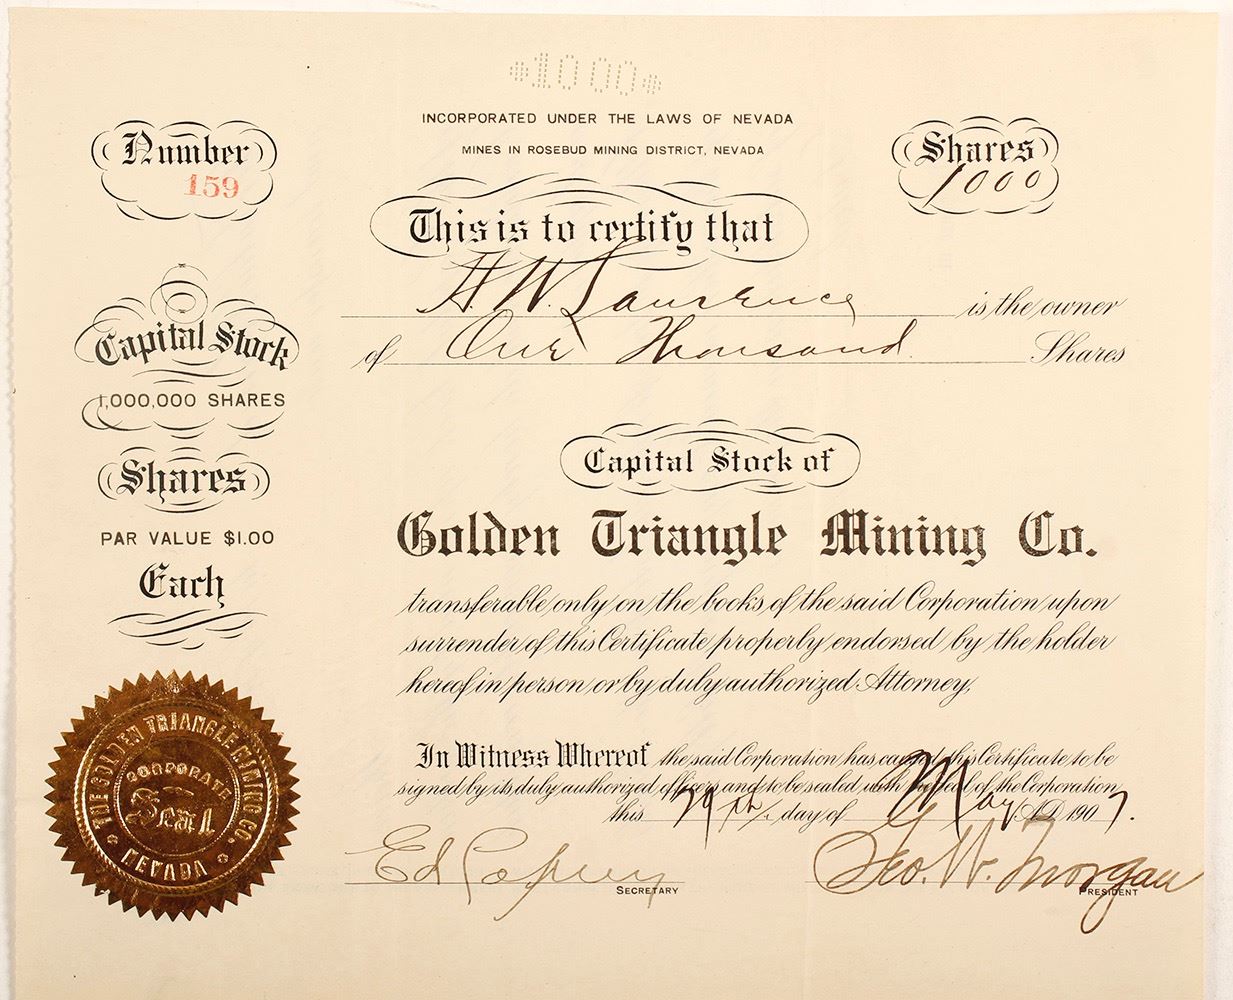 $1000$
INCORPORATED UNDER THE LAWS OF NEVADA
MINES IN ROSEBUD MINING DISTRICT, NEVADA
Number
159
Shares
1000
This is to certify that
H. W. Lawrence is the owner
of One Thousand Shares
Capital Stock
1,000,000 SHARES
Shares
PAR VALUE $1.00
Each
Capital Stock of
Golden Triangle Mining Co.
transferable only on the books of the said Corporation upon
surrender of this Certificate properly endorsed by the holder
hereof in person or by duly authorized Attorney,
In Witness Whereof the said Corporation has caused this Certificate to be
signed by its duly authorized officers and to be sealed with the Seal of the Corporation
this 29th day of May A.D. 1907.
Ed
SECRETARY
Geo. W. Morgan
PRESIDENT
THE GOLDEN TRIANGLE MINING CO.
CORPORATE
Seal
NEVADA